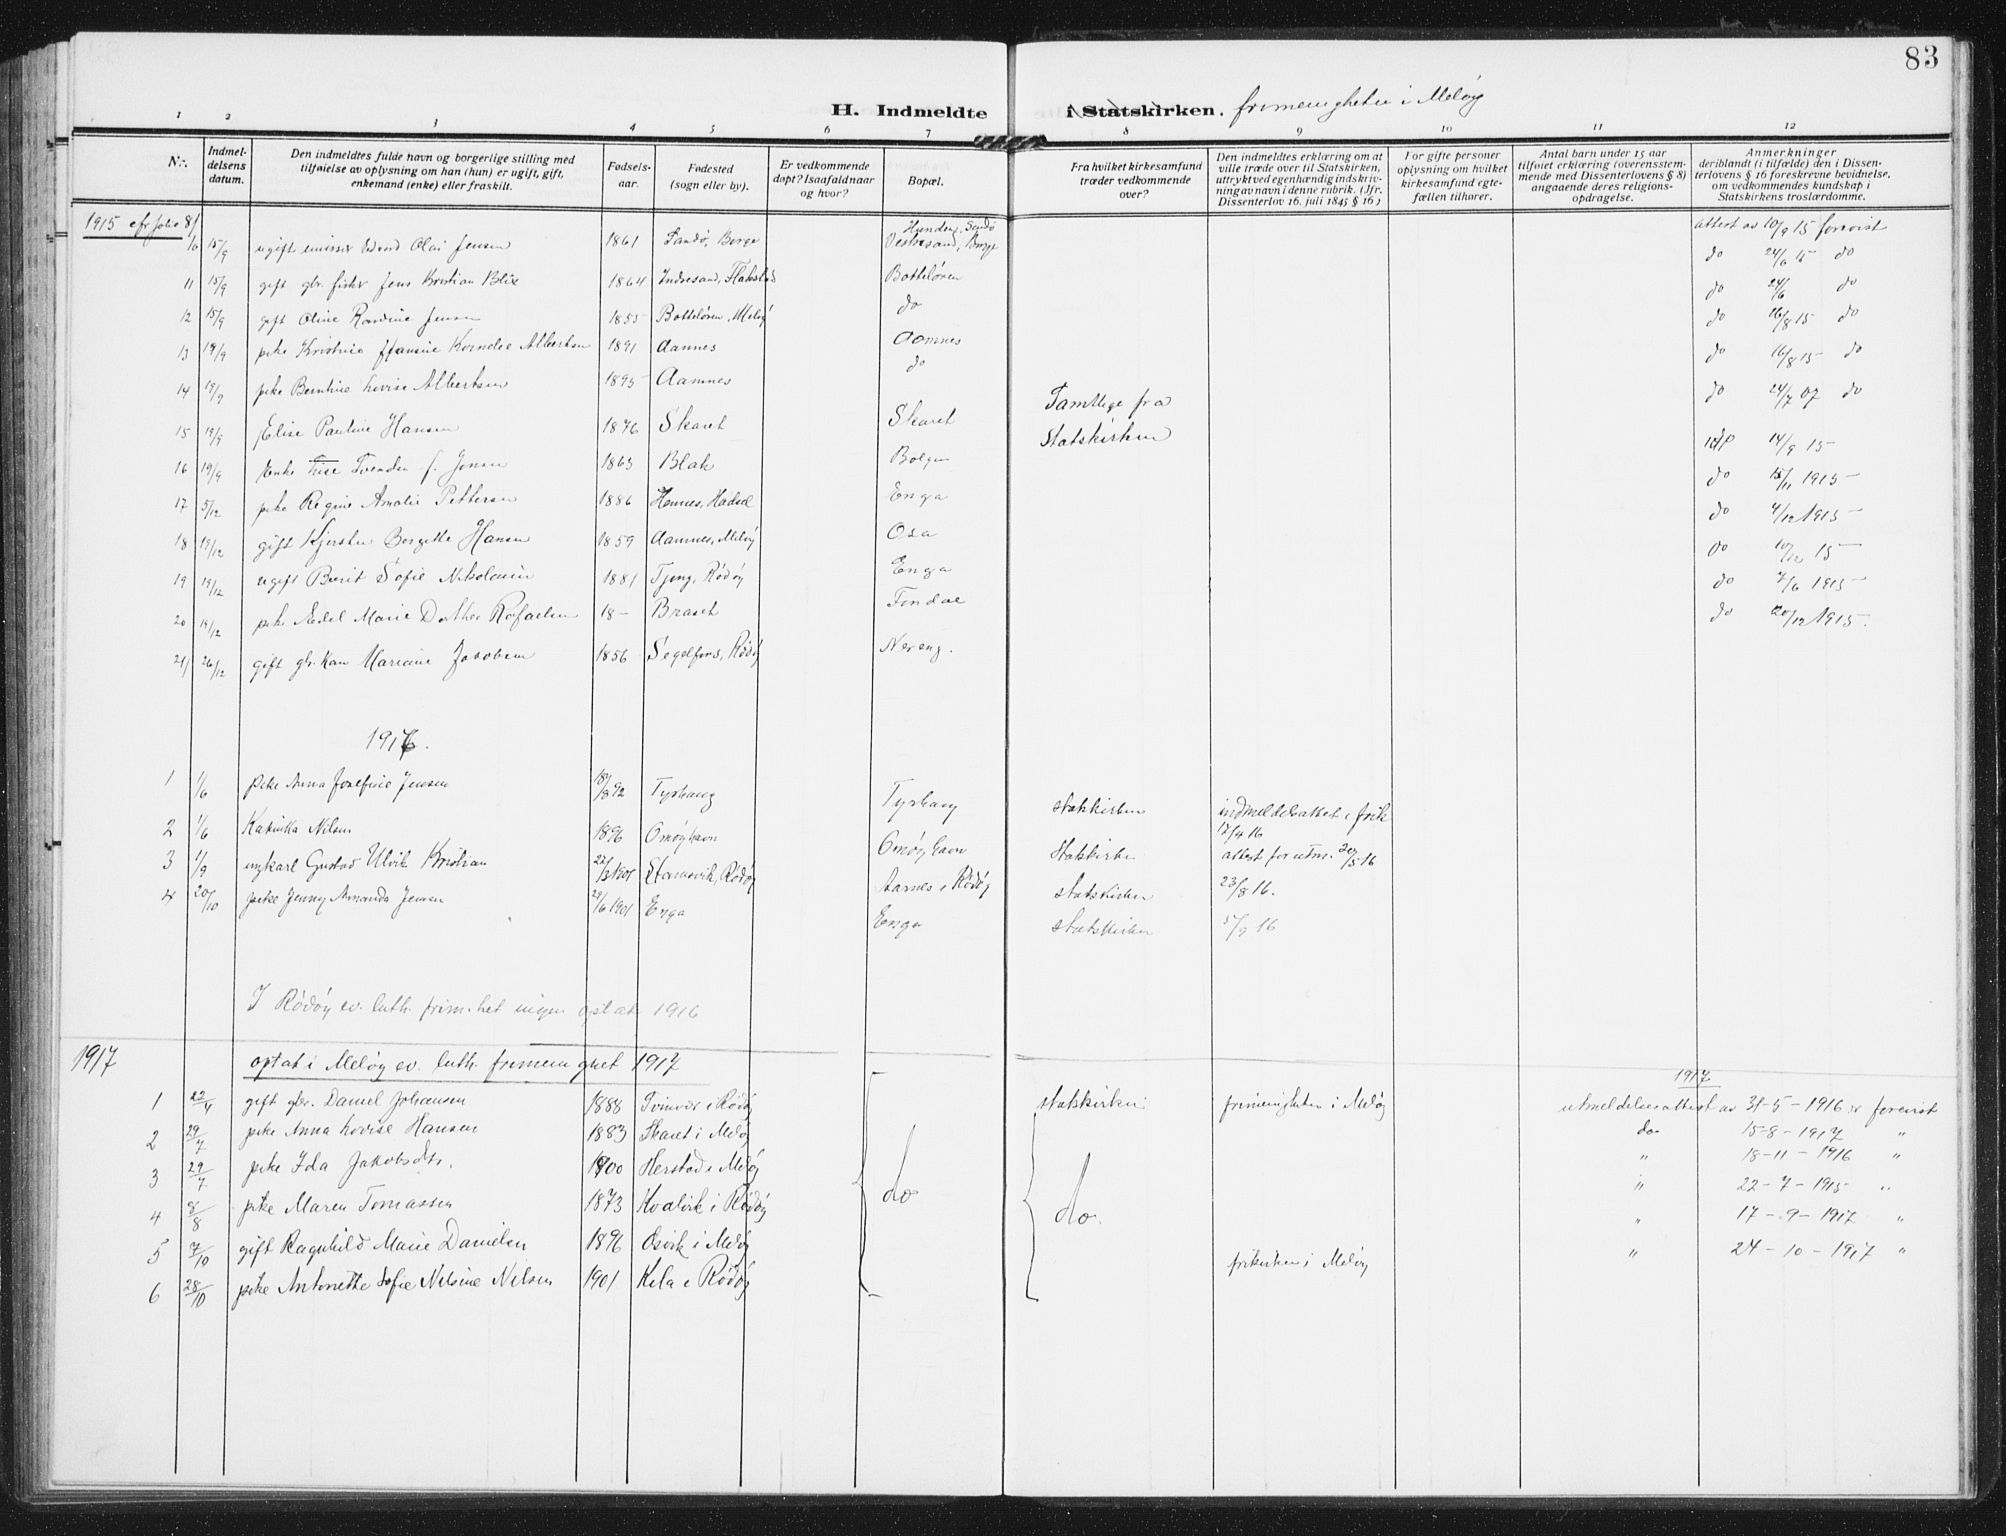 83
H. Indmeldte i Statskirken. frimenigheten i Meløy
1 2 3 4 5 6 7 8 9 10 11 12
Nr. Indmeldelsens datum. Den indmeldtes fulde navn og borgerlige stilling med tilføielse av oplysning om han (hun) er ugift, gift, enkemand (enke) eller fraskilt. Fødselsaar. Fødested (sogn eller by). Er vedkommende døpt? Isaafald naar og hvor? Bopæl. Fra hvilket kirkesamfund træder vedkommende over? Den indmeldtes erklæring om at ville træde over til Statskirken, uttrykt ved egenhændig indskrivning av navn i denne rubrik. (Jfr. Dissenterlov 16. juli 1845 § 16) For gifte personer oplysning om hvilket kirkesamfund egtefællen tilhører. Antal barn under 15 aar tilføiet erklæring (overensstemmende med Dissenterlovens § 8) angaaende deres religionsopdragelse. Anmerkninger deriblandt (i tilfælde) den i Dissenterlovens § 16 foreskrevne bevidnelse, om vedkommendes kundskap i Statskirkens troslærdomme.
1915 cfr folio 81
15/9 ugift emissær Edvard Olai Jensen 1861 Sandø, Borge Vestresand, Borge attest av 10/9 15 forevist
11 15/9 gift gbr. fisker Jens Kristian Blix 1864 Indresand, Flakstad Botteløren do 24/6 15 do
12 15/9 gift Oline Jensen 1855 Botteløren, Meløy do do 24/6 do
13 19/9 pike Kristine Hansine Kornelie Albertsen 1891 Aamnes Aamnes do 16/8 15 do
14 19/9 pike Berntine Lovise Albertsen 1895 Aamnes do do 16/8 15 do
15 19/9 Elise Pauline Hansen 1876 Skaret Skaret Samtlige fra Statskirken do 24/7 07 do
16 19/9 Enke Svendsen f. Jensen 1863 Blak Bolgen 14/9 15
17 5/12 pike Regine Amalie Pettersen 1886 Hennes, Hadsel Enga do 15/11 1915
18 19/12 gift Kjersten Bergette Hansen 1859 Aamnes, Meløy Osa do 4/12 1915
19 19/12 ugift Berit Sofie Nikolaisen 1881 Tjong, Rödöy Enga do 10/12 15
20 19/12 pike Edel Marie Dorthea Rafaelsen 18– Braset Fondal do 7/6 1915
21 26/12 gift gbr.kone Mariane Jakobsen 1856 Segelfors, Rödöy Nereng. do 20/12 1915.
1916.
1 1/6 Pike Anna Josefine Jensen 18/8 92 Tyshaug Tyshaug statskirken indmeldelsattest i frik 12/4 16
2 1/6 Katinka Nilsen 1896 Omøyhavn Omøyhavn Statskirken attest for utm. 20/5 16
3 1/9 ungkarl Gustav Ulrik Kristian 22/3 1901 Rödöy Aarnes i Rödöy statskirken 23/8 16.
4 20/10 pike Jenny Amanda Jensen 29/6 1901 Enga Enga statskirken 5/9 16
I Rödöy ev. luth. frim.het ingen optat 1916
1917 optat i Meløy ev. luth. frimenighet 1917
1917
1 22/4 gift gbr. Daniel Johansen 1888 Svinvær i Rödöy statskirken frimenigheten i Meløy utmeldelsesattest av 31-5-1916 er forevist
2 29/7 pike Anna Lovise Hansen 1883 Skaret i Meløy do 15-8-1917 "
3 29/7 pike Ida Jakobsdtr. 1900 Herstad i Meløy do do. " 18-11-1916 "
4 8/8 pike Maren Tomassen 1873 Kvalvik i Rödöy " 22-7-1915 "
5 7/10 gift Ragnhild Marie Danielsen 1896 Osvik i Meløy " 17-9-1917 "
6 28/10 pike Antonette Sofie Nilsine Nilsen 1901 Kila i Rödöy frikirken i Meløy " 24-10-1917 "